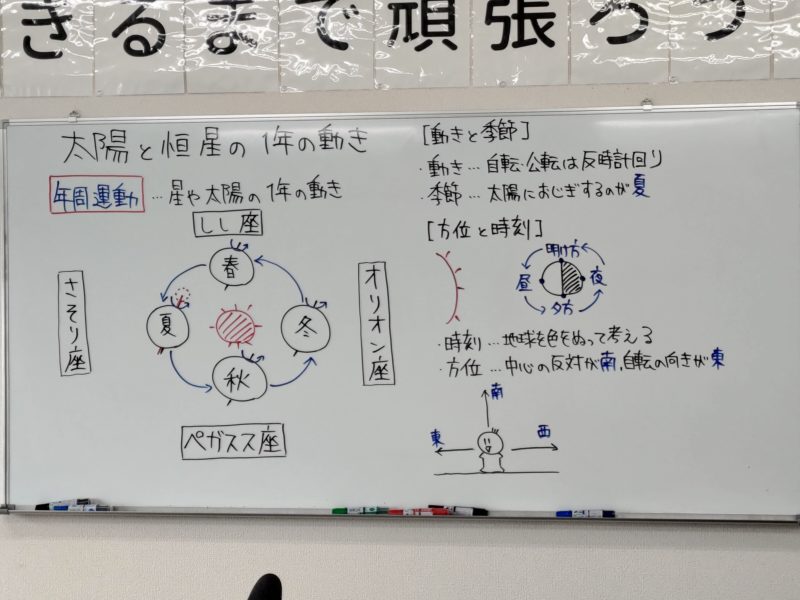 きるまで頑張ろう
太陽と恒星の1年の動き
年周運動…星や太陽の1年の動き
しし座
さそり座
オリオン座
ペガスス座
春
夏
冬
秋
[動きと季節]
・動き…自転・公転は反時計回り
・季節…太陽におじぎするのが夏
[方位と時刻]
明け方
昼
夜
夕方
・時刻…地球を色をぬって考える
・方位…中心の反対が南、自転の向きが東
南
東
西